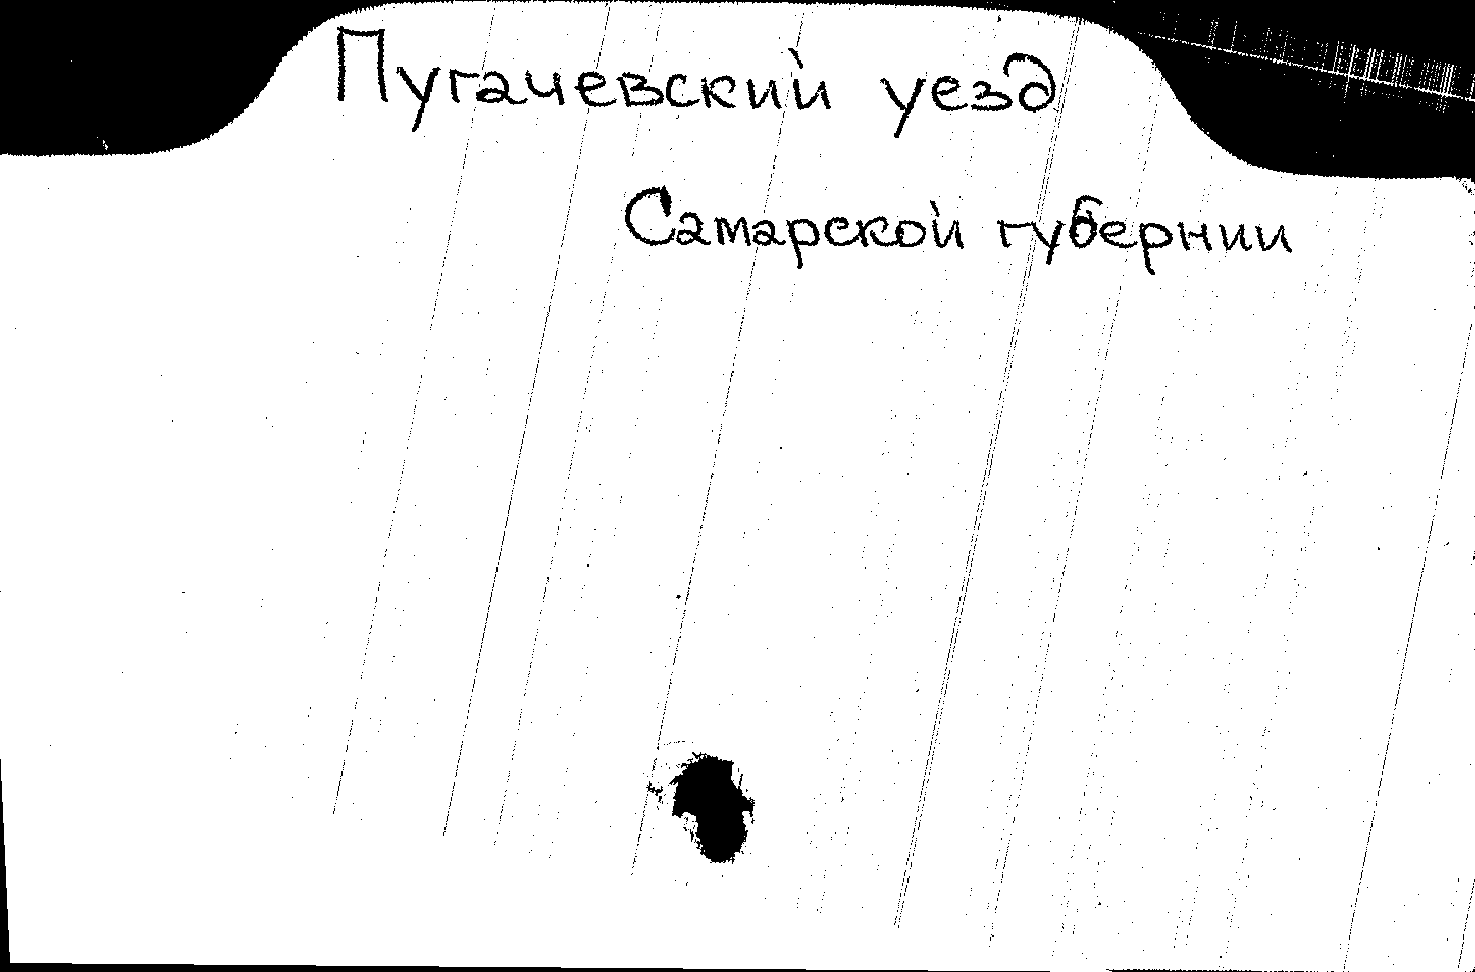 Пугачевский уезд
Самарской губернии